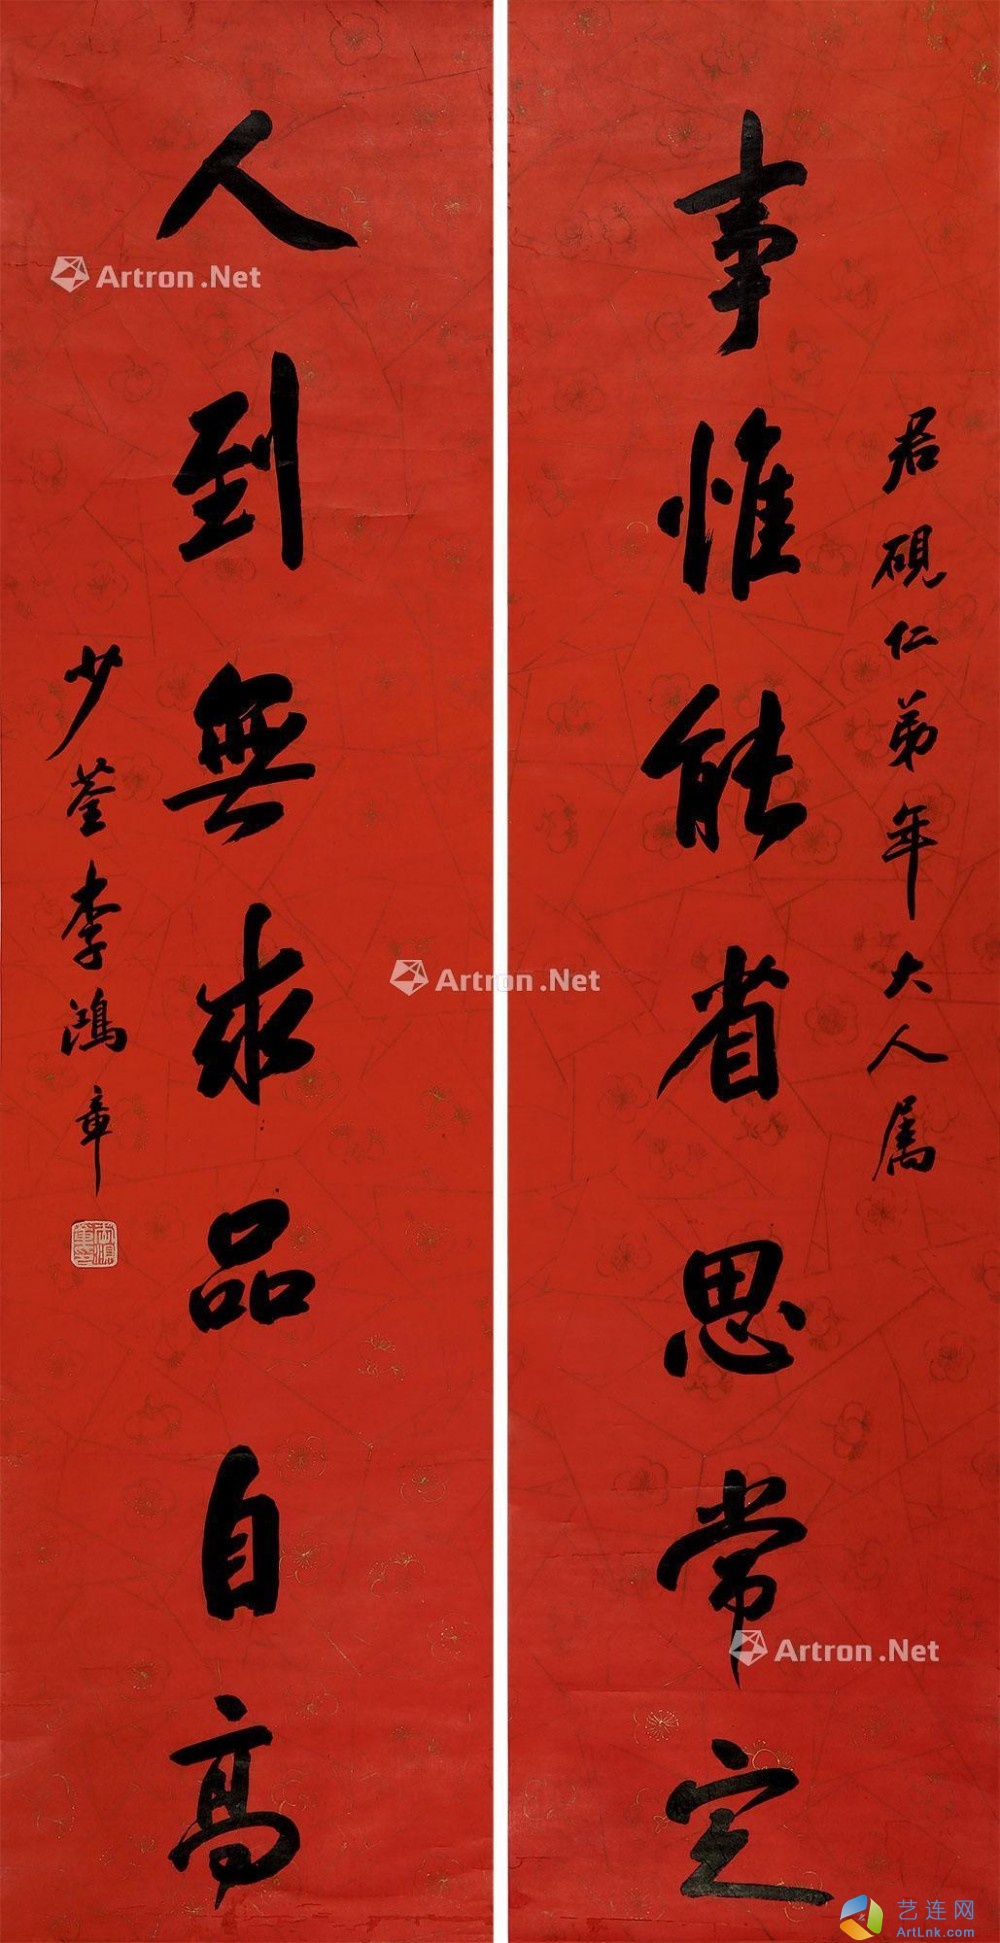 君硯仁弟年大人属
事惟能省思常定
人到無求品自高
少荃李鴻章
Artron.Net
Artron.Net
Artron.Net
艺连网
ArtLnk.com